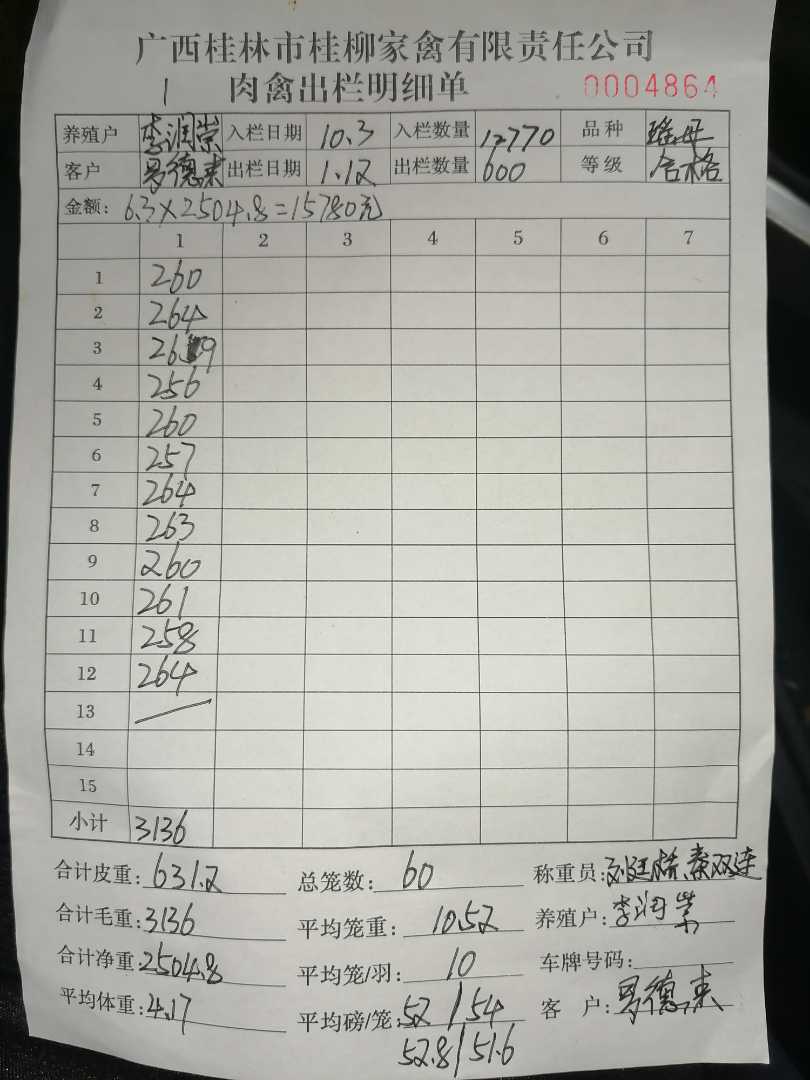 广西桂林市桂柳家禽有限责任公司
1 肉禽出栏明细单 0004864
养殖户 李润崇 入栏日期 10.3 入栏数量 12770 品种 瑶母
客户 易德来 出栏日期 1.12 出栏数量 600 等级 合格
金额: 6.3×2504.8=15780元
1 2 3 4 5 6 7
1 260
2 264
3 269
4 256
5 260
6 257
7 264
8 263
9 260
10 261
11 258
12 264
13 —
14
15
小计 3136
合计皮重: 631.2 总笼数: 60 称重员: 秦双连
合计毛重: 3136 平均笼重: 10.52 养殖户: 李润崇
合计净重: 2504.8 平均笼/羽: 10 车牌号码:
平均体重: 4.17 平均磅/笼: 52/54 客户: 易德来
52.8/51.6